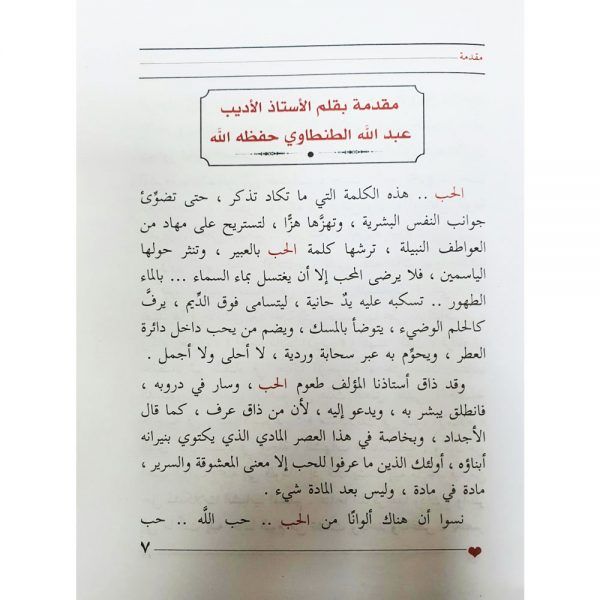 مقدمة
مقدمة بقلم الأستاذ الأديب
عبد الله الطنطاوي حفظه الله
الحب .. هذه الكلمة التي ما تكاد تذكر ، حتى تضوِّئ
جوانب النفس البشرية ، وتهزَّها هزًّا ، لتستريح على مهاد من
العواطف النبيلة ، ترشها كلمة الحب بالعبير ، وتنثر حولها
الياسمين ، فلا يرضى المحب إلا أن يغتسل بماء السماء ... بالماء
الطهور .. تسكبه عليه يدٌ حانية ، ليتسامى فوق الدِّيم ، يرفَّ
كالحلم الوضيء ، يتوضأ بالمسك ، ويضم من يحب داخل دائرة
العطر ، ويحوِّم به عبر سحابة وردية ، لا أحلى ولا أجمل .
وقد ذاق أستاذنا المؤلف طعوم الحب ، وسار في دروبه ،
فانطلق يبشر به ، ويدعو إليه ، لأن من ذاق عرف ، كما قال
الأجداد ، وبخاصة في هذا العصر المادي الذي يكتوي بنيرانه
أبناؤه ، أولئك الذين ما عرفوا للحب إلا معنى المعشوقة والسرير ،
مادة في مادة ، وليس بعد المادة شيء .
نسوا أن هناك ألوانًا من الحب .. حب اللَّه .. حب
٧